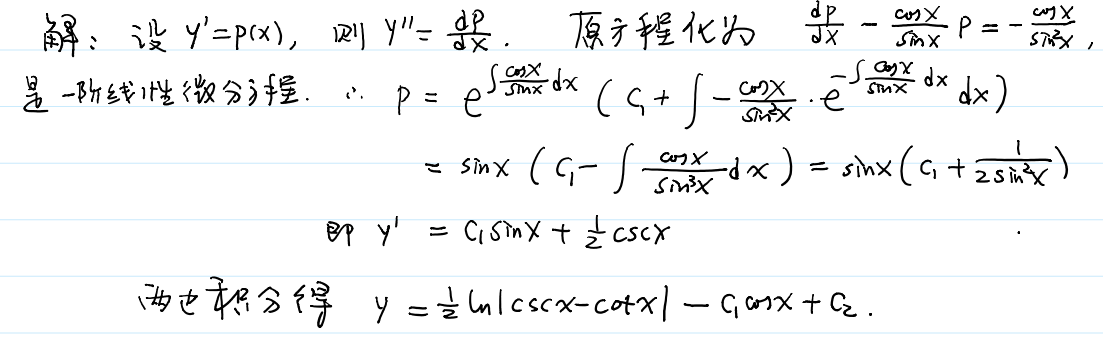 解：设 y'=p(x), 则 y''=dp/dx. 原方程化为 dp/dx - cosx/sinx p = - cosx/sin²x,
是一阶线性微分方程. ∴ p = e^{∫cosx/sinx dx} ( C₁ + ∫ - cosx/sin²x · e^{-∫cosx/sinx dx} dx )
= sinx ( C₁ - ∫ cosx/sin³x dx ) = sinx ( C₁ + 1/2sin²x )
即 y' = C₁sinx + 1/2 cscx
两边积分得 y = 1/2 ln|cscx-cotx| - C₁cosx + C₂.